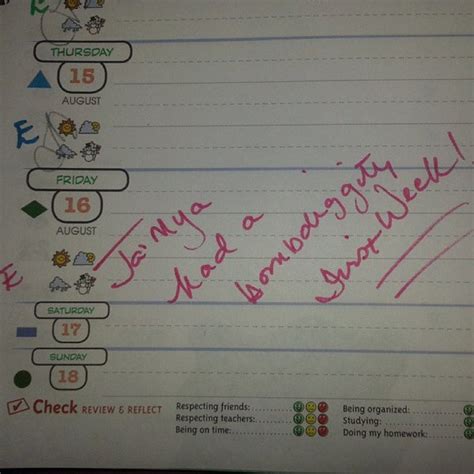 E
THURSDAY
15
AUGUST
E
FRIDAY
16
AUGUST
E
Jai'Mya
had a
bombdiggity
first Week!
SATURDAY
17
SUNDAY
18
Check REVIEW & REFLECT
Respecting friends:
Respecting teachers:
Being on time:
Being organized:
Studying:
Doing my homework: